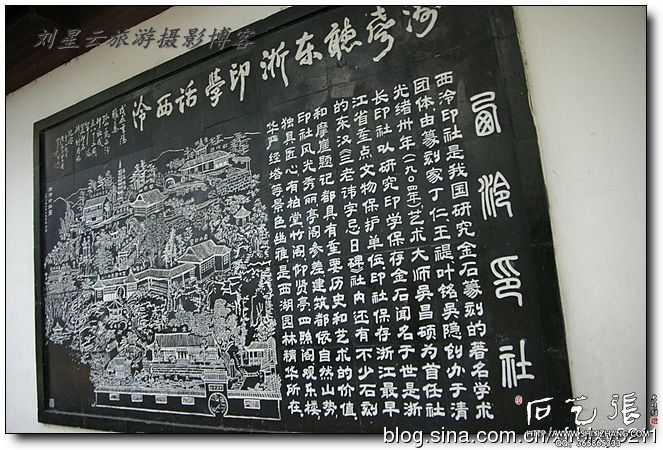 刘星云旅游摄影博客
濤聽東浙印學話西泠
西泠印社
西泠印社是我国研究金石篆刻的著名学术
团体由篆刻家丁仁王禔叶铭吴隐创办于清
光绪卅年(一九〇四年)艺术大师吴昌硕为首任社
长印社以研究印学保存金石闻名于世是浙
江省重点文物保护单位印社保存浙江最早
的东汉《三老讳字忌日碑》社内还有不少石刻
和摩崖题记都具有重要历史和艺术的价值
印社风光秀丽亭阁参差建筑都依自然山势
独具匠心有柏堂竹阁仰贤亭四照阁观乐楼
华严经塔等景色幽雅是西湖园林精华所在
石艺張
blog.sina.com.cn/